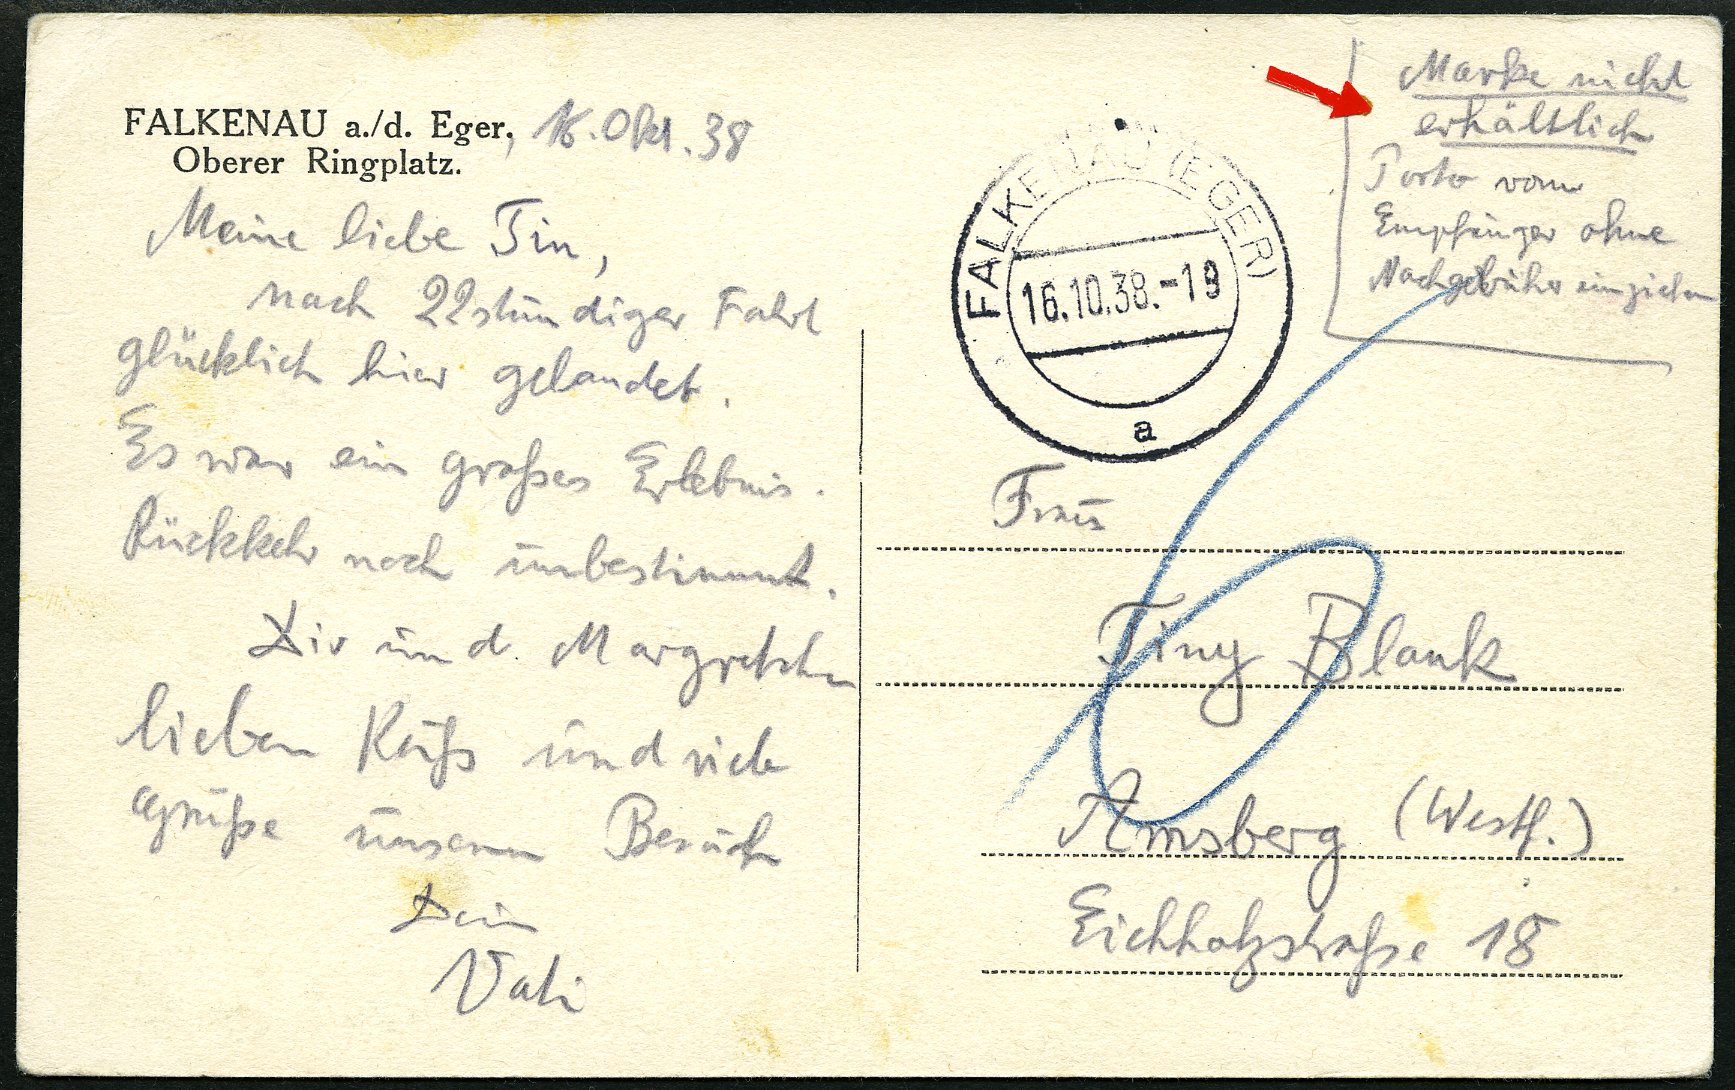 FALKENAU a./d. Eger, 16. Okt. 38
Oberer Ringplatz.
Meine liebe Tin,
nach 22stündiger Fahrt
glücklich hier gelandet.
Es war ein großes Erlebnis.
Rückkehr noch unbestimmt.
Dir und Margretchen
lieben Kuß und viele
Grüße unserem Besuch
Dein
Vati
Marke nicht
erhältlich
Porto vom
Empfänger ohne
Nachgebühr einziehen
FALKENAU (EGER)
16.10.38.-19
a
Frau
Tiny Blank
Arnsberg (Westf.)
Eichholzstraße 18